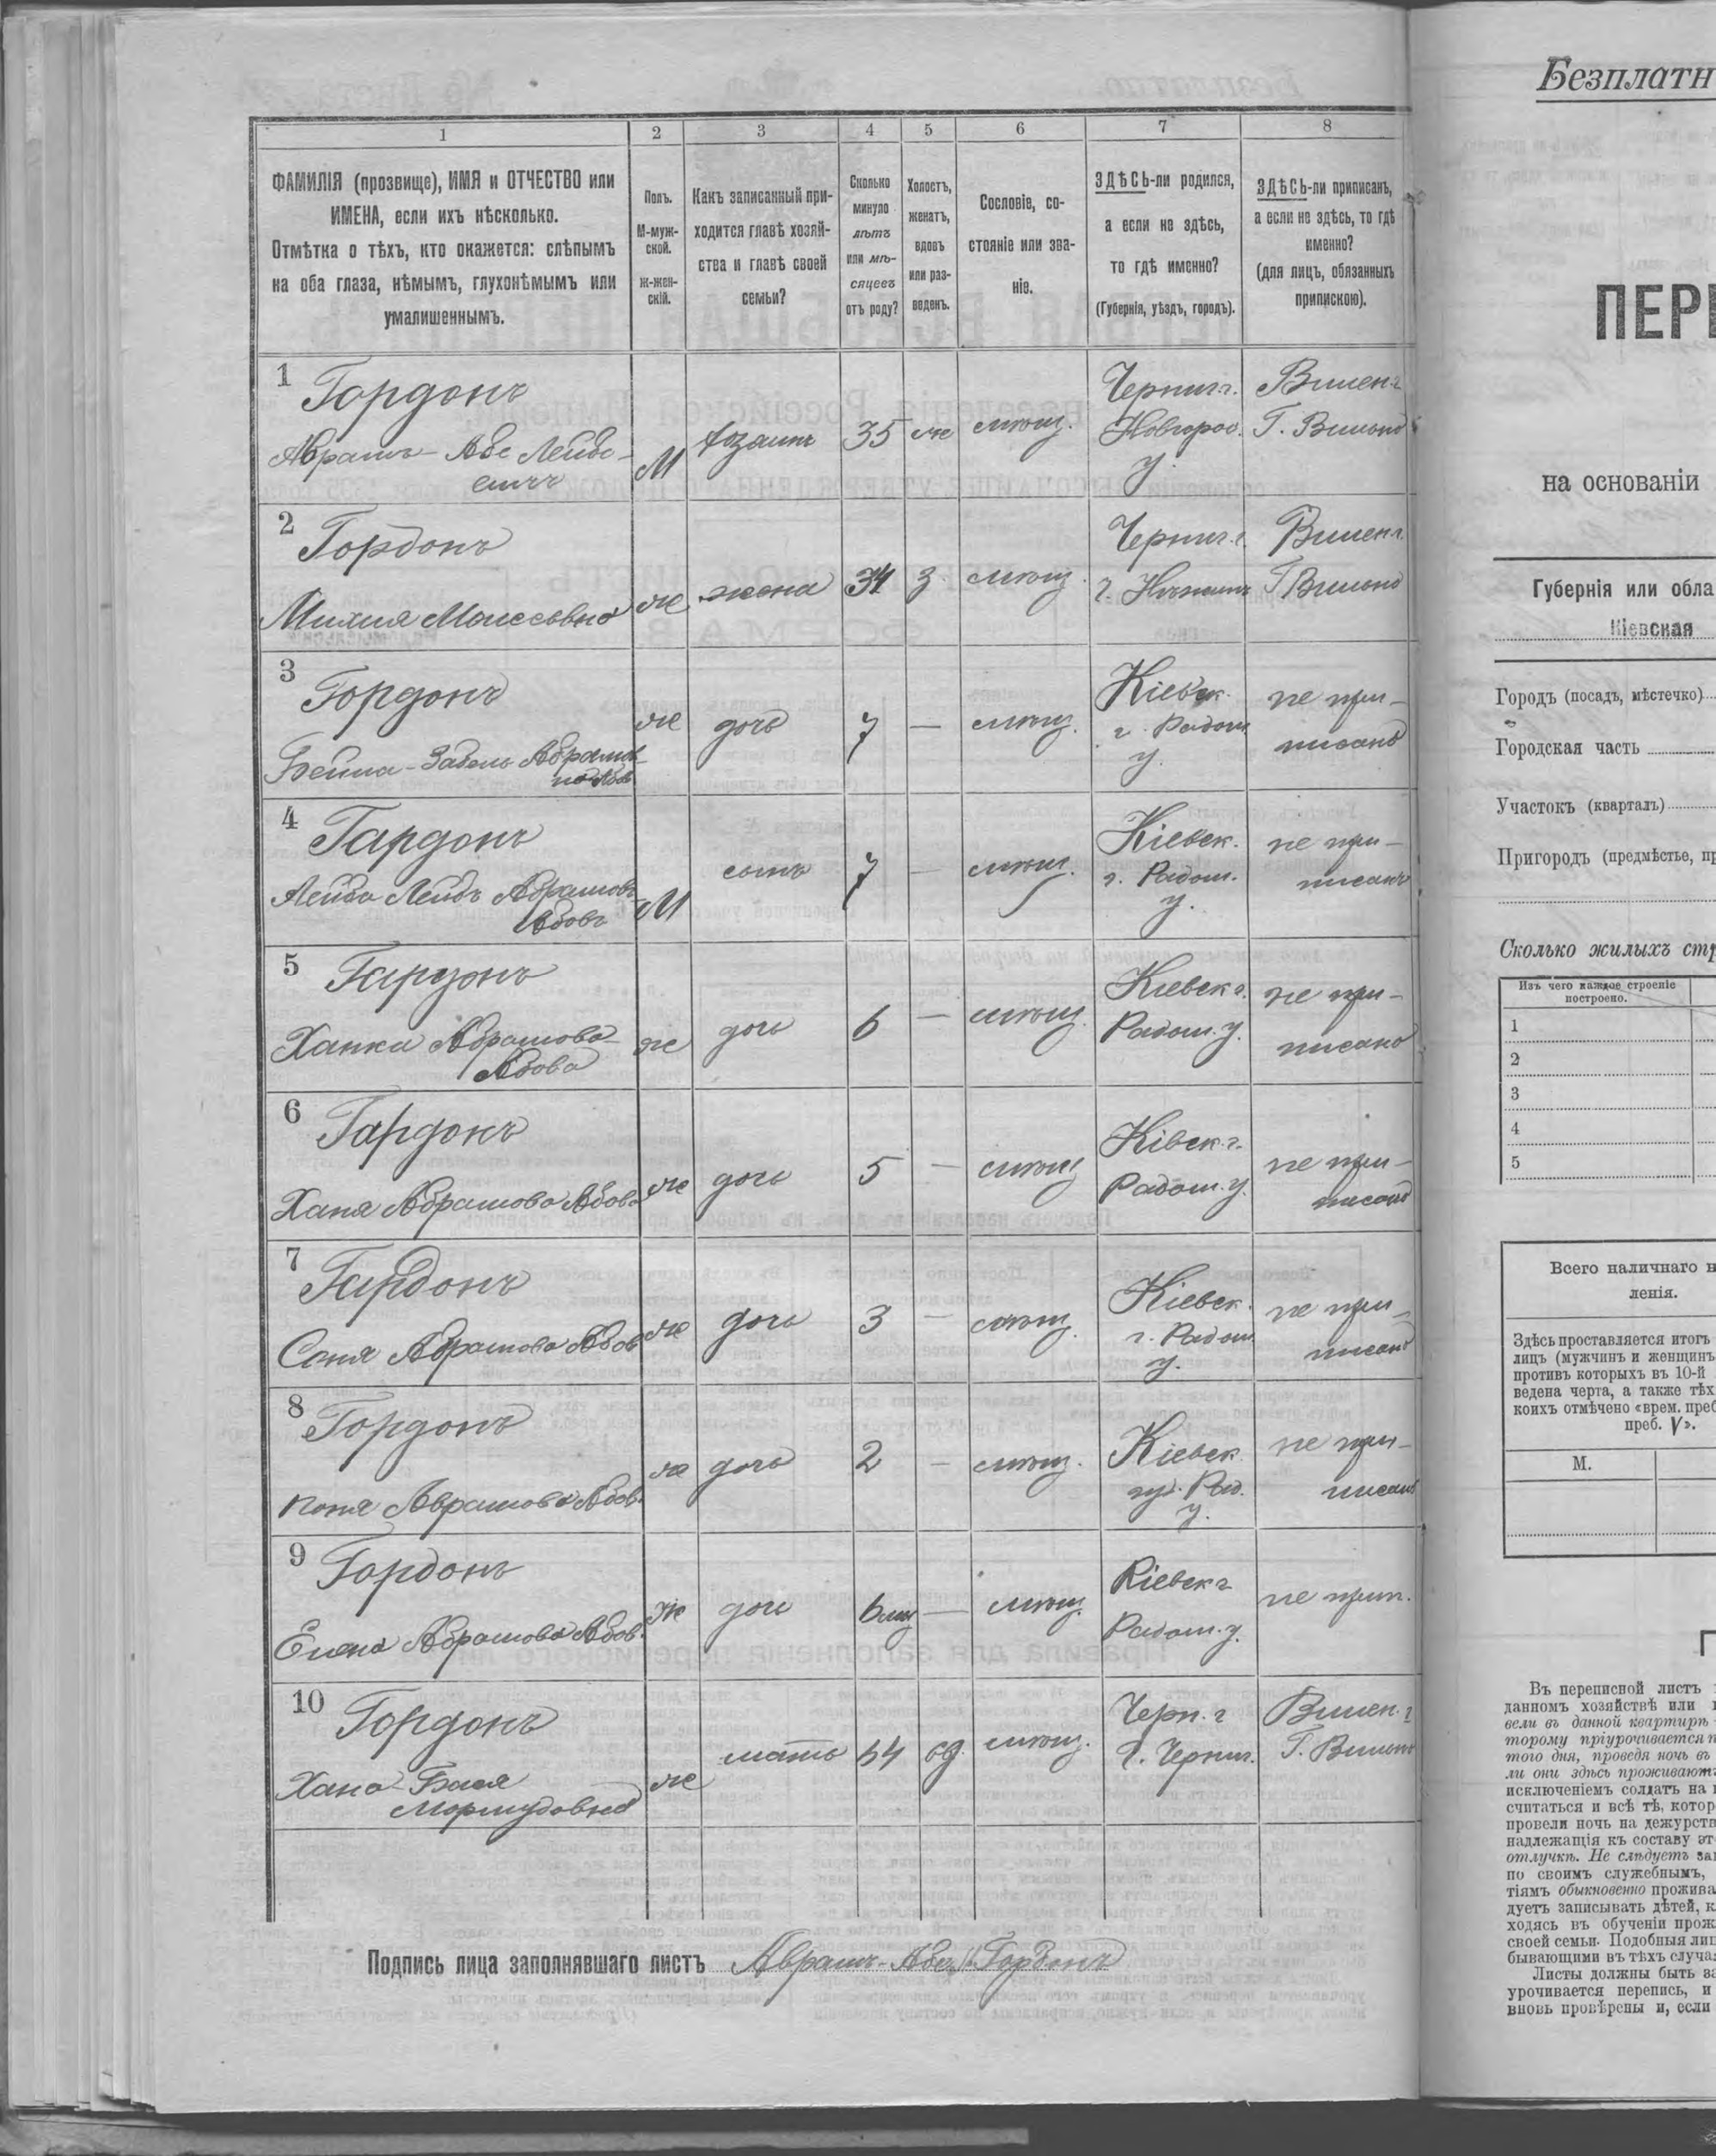 1 2 3 4 5 6 7 8
ФАМИЛІЯ (прозвище), ИМЯ и ОТЧЕСТВО или
ИМЕНА, если ихъ нѣсколько.
Отмѣтка о тѣхъ, кто окажется: слѣпымъ
на оба глаза, нѣмымъ, глухонѣмымъ или
умалишеннымъ.
Полъ.
М-муж-
ской.
ж-жен-
скій.
Какъ записанный при-
ходится главѣ хозяй-
ства и главѣ своей
семьи?
Сколько
минуло
лѣтъ
или мѣ-
сяцевъ
отъ роду?
Холостъ,
женатъ,
вдовъ
или раз-
веденъ.
Сословіе, со-
стояніе или зва-
ніе.
ЗДѢСЬ-ли родился,
а если не здѣсь,
то гдѣ именно?
(Губернія, уѣздъ, городъ).
ЗДѢСЬ-ли приписанъ,
а если не здѣсь, то гдѣ
именно?
(для лицъ, обязанныхъ
припискою).
1 Гордонъ
Абрамъ-Абе Лейбо-
вичъ
М
хозяинъ
35
ж
мѣщ.
Черниг.г.
Новгород.
у.
Вилен.г.
Г. Вильно
2 Гордонъ
Моисеевна
же
жена
34
з.
мѣщ.
Черниг.г.
г. Нѣжинъ
Вилен.г.
Г Вильно
3 Гордонъ
Бейла-
же
дочь
7
—
мѣщ.
Кіевск.
г. Радом.
у.
не при-
писана
4 Гардонъ
Лейба Лейбъ Абрамовъ
Абовъ
М
сынъ
7
—
мѣщ.
Кіевск.
г. Радом.
у.
не при-
писанъ
5 Гардонъ
Абрамова
Абова
же
дочь
6
—
мѣщ.
Кіевск г.
Радом. у.
не при-
писана
6 Гардонъ
Ханя Абрамова Абова
же
дочь
5
—
мѣщ
Ківск г.
Радом. у.
не при-
писана
7 Гардонъ
Соня Абрамова Абов
же
дочь
3
—
мѣщ.
Кіевск.
г. Радом
у.
не при-
писана
8 Гордонъ
Абрамова Абов.
же
дочь
2
—
мѣщ.
Кіевск
губ. Рад.
у.
не при-
писана
9 Гордонъ
Елена Абрамова Абов.
Же
дочь
6 мц
—
мѣщ.
Кіевск г
Радом. у.
не прип.
10 Гордонъ
Хана-Бася
же
мать
54
мѣщ.
Черн. г
г. Черниг.
Вилен. г
Г. Вильно
Подпись лица заполнявшаго листъ Абрамъ-Абе Гордонъ
Безплатн
ПЕРЕ
на основаніи
Губернія или обла
Кіевская
Городъ (посадъ, мѣстечко)
Городская часть
Участокъ (кварталъ)
Пригородъ (предмѣстье, пр
Сколько жилыхъ стр
Изъ чего каждое строеніе
построено.
1
2
3
4
5
Всего наличнаго н
ленія.
Здѣсь проставляется итогъ
лицъ (мужчинъ и женщинъ
противъ которыхъ въ 10-й
ведена черта, а также тѣх
коихъ отмѣчено «врем. преб
преб. V».
М.
Въ переписной листъ
данномъ хозяйствѣ или
вели въ данной квартирѣ
торому пріурочивается п
того дня, проведя ночь въ
ли они здѣсь проживают
исключеніемъ солдатъ на
считаться и всѣ тѣ, котор
провели ночь на дежурств
надлежащія къ составу эт
отлучкѣ. Не слѣдуетъ за
по своимъ служебнымъ,
тіямъ обыкновенно прожива
дуетъ записывать дѣтей, к
ходясь въ обученіи прож
своей семьи. Подобныя лиц
бывающими въ тѣхъ случа
Листы должны быть за
урочивается перепись, и
вновь провѣрены и, если